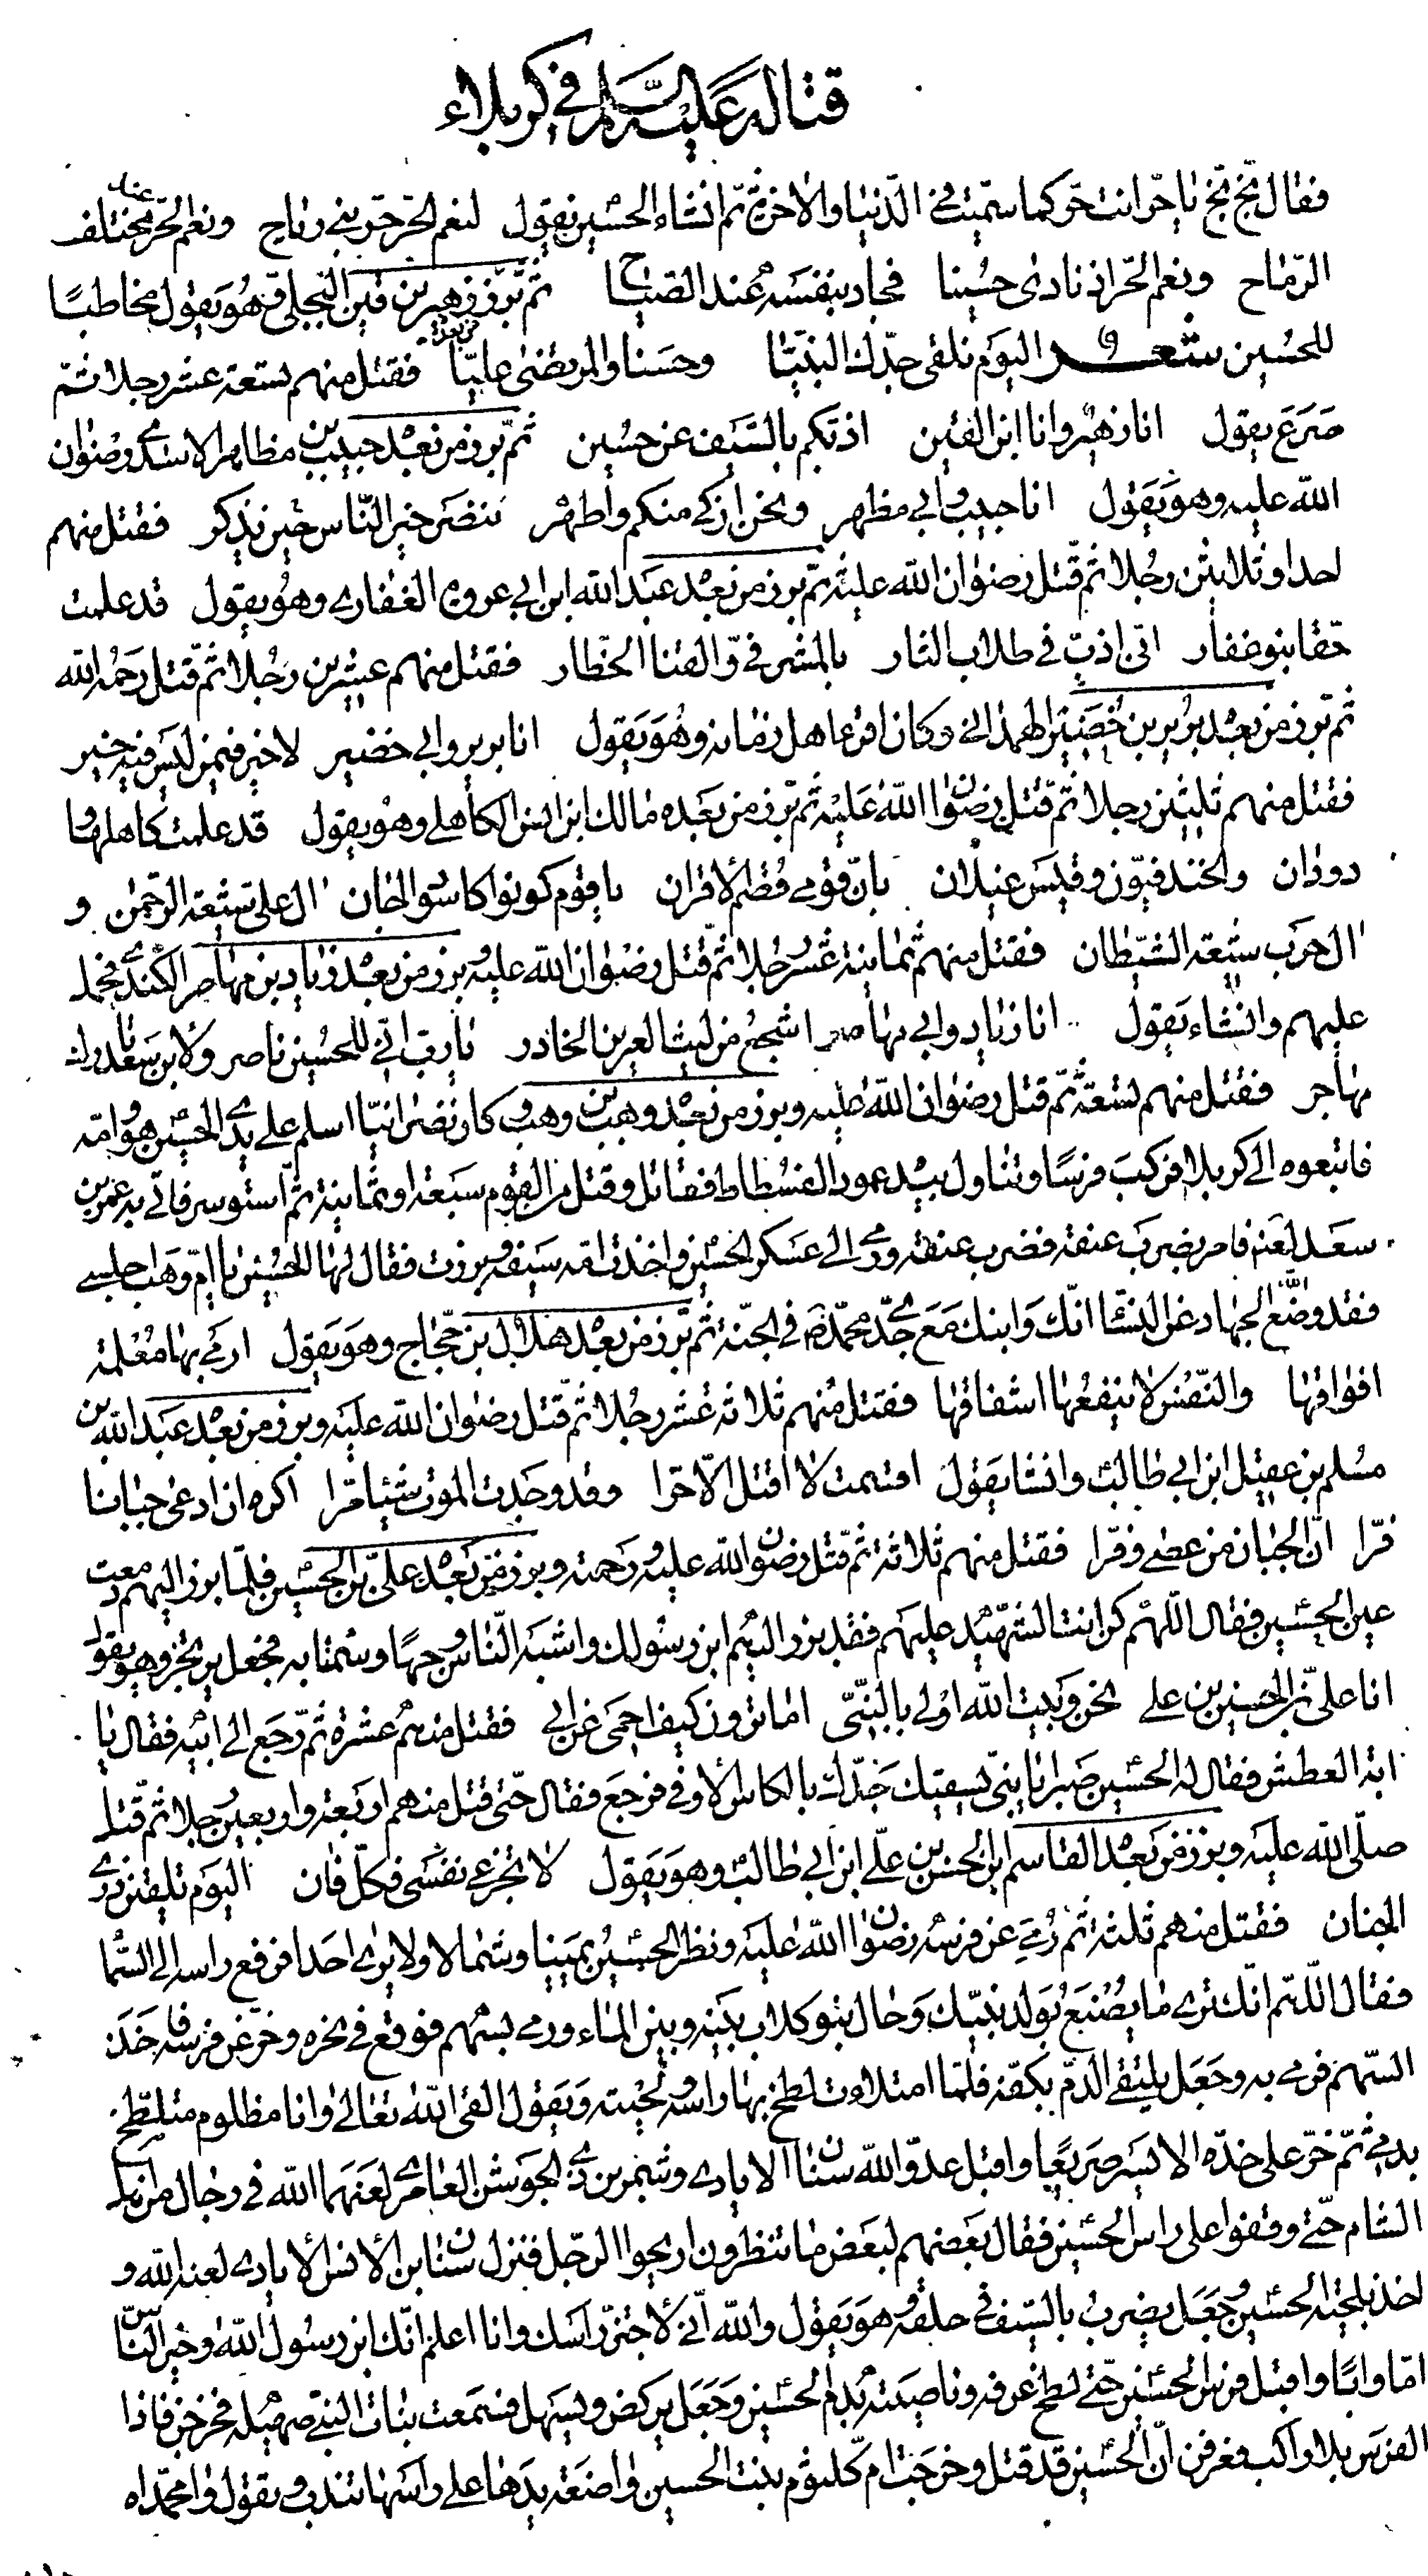 قتاله عليه السلام في كربلاء
فقال بخ بخ يا حر انت حر كما سميت في الدنيا والاخرة ثم انشاء الحسين يقول لنعم الحر حر بني رياح ونعم الحر عند مختلف
الرماح ونعم الحر اذ نادى حسينا فجاد بنفسه عند الصباح ثم برز زهير بن قين البجلي وهو يقول مخاطبا
للحسين شعر اليوم نلقى جدك النبيا وحسنا والمرتضى عليا فقتل منهم تسعة عشر رجلا ثم
صرع يقول انا زهير وانا ابن القين اذبكم بالسيف عن حسين ثم برز من بعده حبيب بن مظاهر الاسدي رضوان
الله عليه وهو يقول انا حبيب وابي مظهر ونحن ازكى منكم واطهر ننصر خير الناس حين نذكر فقتل منهم
احدا وثلاثين رجلا ثم قتل رضوان الله عليه ثم برز من بعده عبد الله ابن ابي عروة الغفاري وهو يقول قد علمت
حقا بنو غفار اني اذب في طلاب الثار بالمشرفي والقنا الخطار فقتل منهم عشرين رجلا ثم قتل رحمه الله
ثم برز من بعده برير بن خضير الهمداني وكان اقرء اهل زمانه وهو يقول انا برير وابي خضير لا خير فيمن ليس فيه خير
فقتل منهم ثلثين رجلا ثم قتل رضوان الله عليه ثم برز من بعده مالك ابن انس الكاهلي وهو يقول قد علمت كاهلها و
دودان والخندفيون وقيس عيلان بان قومي قصم الاقران يا قوم كونوا كاسود الجان ال علي شيعة الرحمن و
ال حرب شيعة الشيطان فقتل منهم ثمانية عشر رجلا ثم قتل رضوان الله عليه وبرز من بعده زياد بن مهاصر الكندي فحمل
عليهم وانشاء يقول انا زياد وابي مهاصر اشجع من ليث العرين الخادر يا رب اني للحسين ناصر ولابن سعد تارك
مهاجر فقتل منهم تسعة ثم قتل رضوان الله عليه وبرز من بعده وهب بن وهب وكان نصرانيا اسلم على يدي الحسين هو وامه
فاتبعوه الى كربلا فركب فرسا وتناول بيده عمود الفسطاط فقاتل وقتل من القوم سبعة او ثمانية ثم استوسر فاتي به عمر بن
سعد لعنه فامر بضرب عنقه فضرب عنقه ورمي الى عسكر الحسين واخذت امه سيفه وبرزت فقال لها الحسين يا ام وهب اجلسي
فقد وضع الله الجهاد عن النساء انك وابنك مع جدي محمد ص في الجنة ثم برز من بعده هلال بن حجاج وهو يقول ارمي بها معلمة
افواقها والنفس لا ينفعها اشفاقها فقتل منهم ثلاثة عشر رجلا ثم قتل رضوان الله عليه وبرز من بعده عبد الله بن
مسلم بن عقيل ابن ابي طالب وانشا يقول اقسمت لا اقتل الا حرا وقد وجدت الموت شيئا مرا اكره ان ادعى جبانا
فرا ان الجبان من عصى وفرا فقتل منهم ثلاثة ثم قتل رضوان الله عليه ورحمته وبرز من بعده علي بن الحسين فلما برز اليهم دمعت
عين الحسين فقال اللهم كن انت الشهيد عليهم فقد برز اليهم ابن رسولك واشبه الناس وجها وسمتا به فجعل يرتجز وهو يقول
انا علي بن الحسين بن علي نحن وبيت الله اولى بالنبي اما ترون كيف احمي عن ابي فقتل منهم عشرة ثم رجع الى ابيه فقال يا
ابة العطش فقال له الحسين صبرا يا بني يسقيك جدك بالكاس الاوفى فرجع فقال حتى قتل منهم اربعة واربعين رجلا ثم قتل
صلى الله عليه وبرز من بعده القاسم ابن الحسن بن علي ابن ابي طالب وهو يقول لا تجزعي نفسي فكل فان اليوم تلقين ذرى
الجنان فقتل منهم ثلثة ثم رمي عن فرسه رضوان الله عليه ونظر الحسين يمينا وشمالا ولا يرى احدا فرفع راسه الى السما
فقال اللهم انك ترى ما يصنع بولد نبيك وحال بنو كلاب بينه وبين الماء ورمي بسهم فوقع في نحره وخر عن فرسه فاخذ
السهم فرمى به وجعل يتلقى الدم بكفه فلما امتلاءت لطخ بها راسه ولحيته ويقول القى الله تعالى وانا مظلوم متلطخ
بدمي ثم خر على خده الايسر صريعا واقبل عدو الله سنان الايادي وشمر بن ذي الجوشن العامري لعنهما الله في رجال من اهل
الشام حتى وقفوا على راس الحسين فقال بعضهم لبعض ما تنظرون اريحوا الرجل فنزل سنان بن الانس الايادي لعنه الله و
اخذ بلحية الحسين وجعل يضرب بالسيف في حلقه وهو يقول والله اني لاجتز راسك وانا اعلم انك ابن رسول الله وخير الناس
اما وابا واقبل فرس الحسين حتى لطخ عرفه وناصيته بدم الحسين وجعل يركض ويصهل فسمعت بنات النبي صهيله فخرجن فاذا
الفرس بلا راكب فعرفن ان الحسين قد قتل وخرجت ام كلثوم بنت الحسين واضعة يدها على راسها تندب وتقول وا محمداه